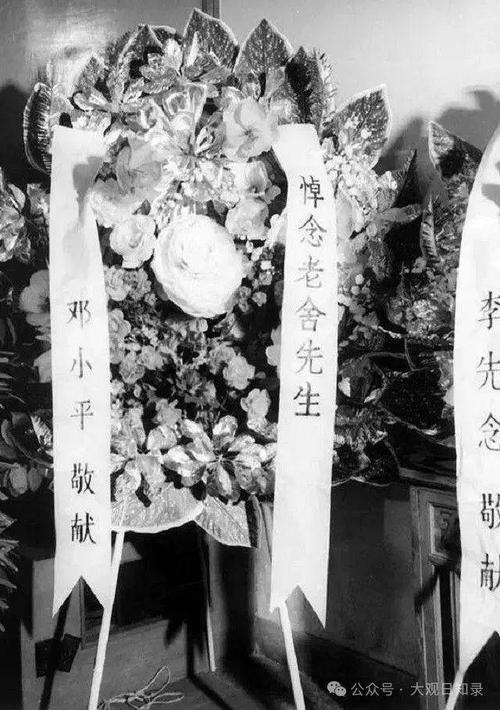 悼念老舍先生
邓小平敬献
李先念敬献
公众号·大观日知录